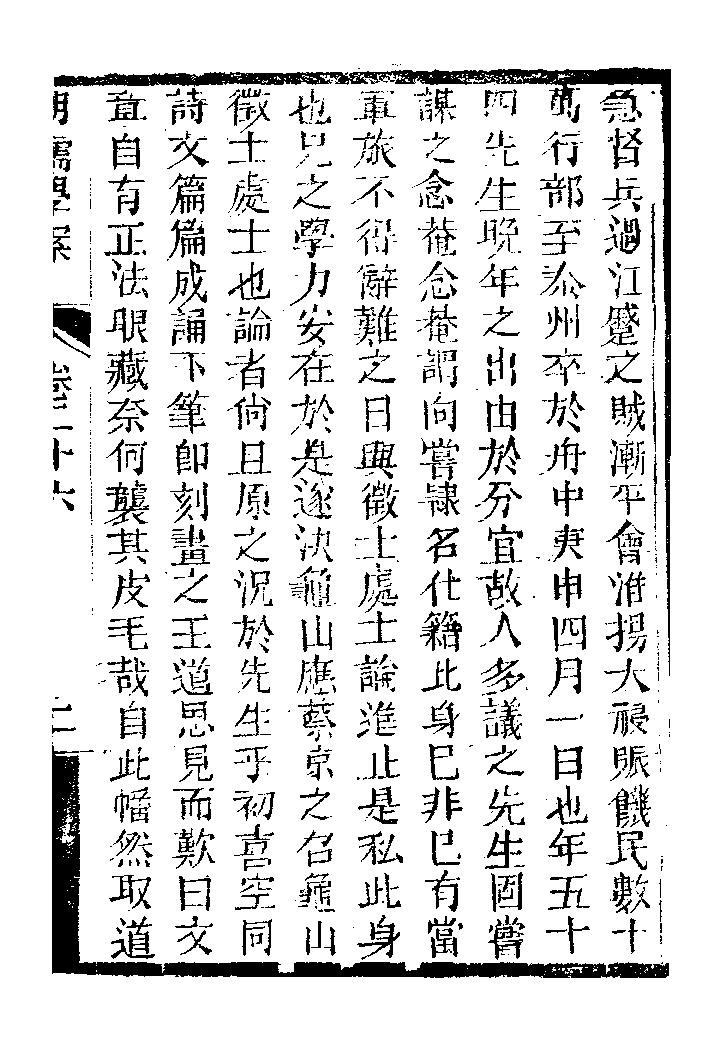 急督兵過江蹙之賊漸平會淮揚大祲賑饑民數十
萬行部至泰州卒於舟中庚申四月一日也年五十
四先生晚年之出由於分宜故人多議之先生固嘗
謀之念菴念菴謂向嘗隸名仕籍此身已非己有當
軍旅不得辭難之日與徵士處士論進止是私此身
也兄之學力安在於是遂決龜山應蔡京之召龜山
徵士處士也論者尙且原之況於先生乎初喜空同
詩文篇篇成誦下筆卽刻畫之王道思見而歎曰文
章自有正法眼藏奈何襲其皮毛哉自此幡然取道
明儒學案
卷二十六